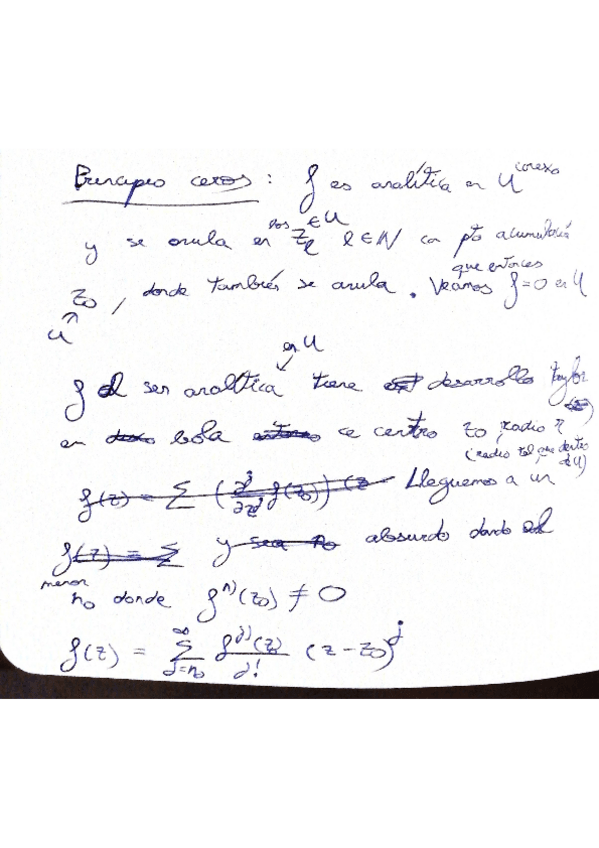 Principio ceros: f es analítica en U conexo
y se anula en los z_l ∈ U l ∈ N con pto acumulación
z_0, donde también se anula. Veamos que entonces f = 0 en U
U
en U
f al ser analítica tiene desarrollo taylor
en bola de centro z_0, radio r
(radio tal que dentro de U)
f(z) = Σ (∂^j/∂z^j f(z_0)) (z Lleguemos a un
f(z) = Σ y sea n_0 absurdo dando el
menor
n_0 donde f^{n)}(z_0) ≠ 0
f(z) = Σ_{j=n_0}^{∞} f^{j)}(z_0)/j! (z-z_0)^j